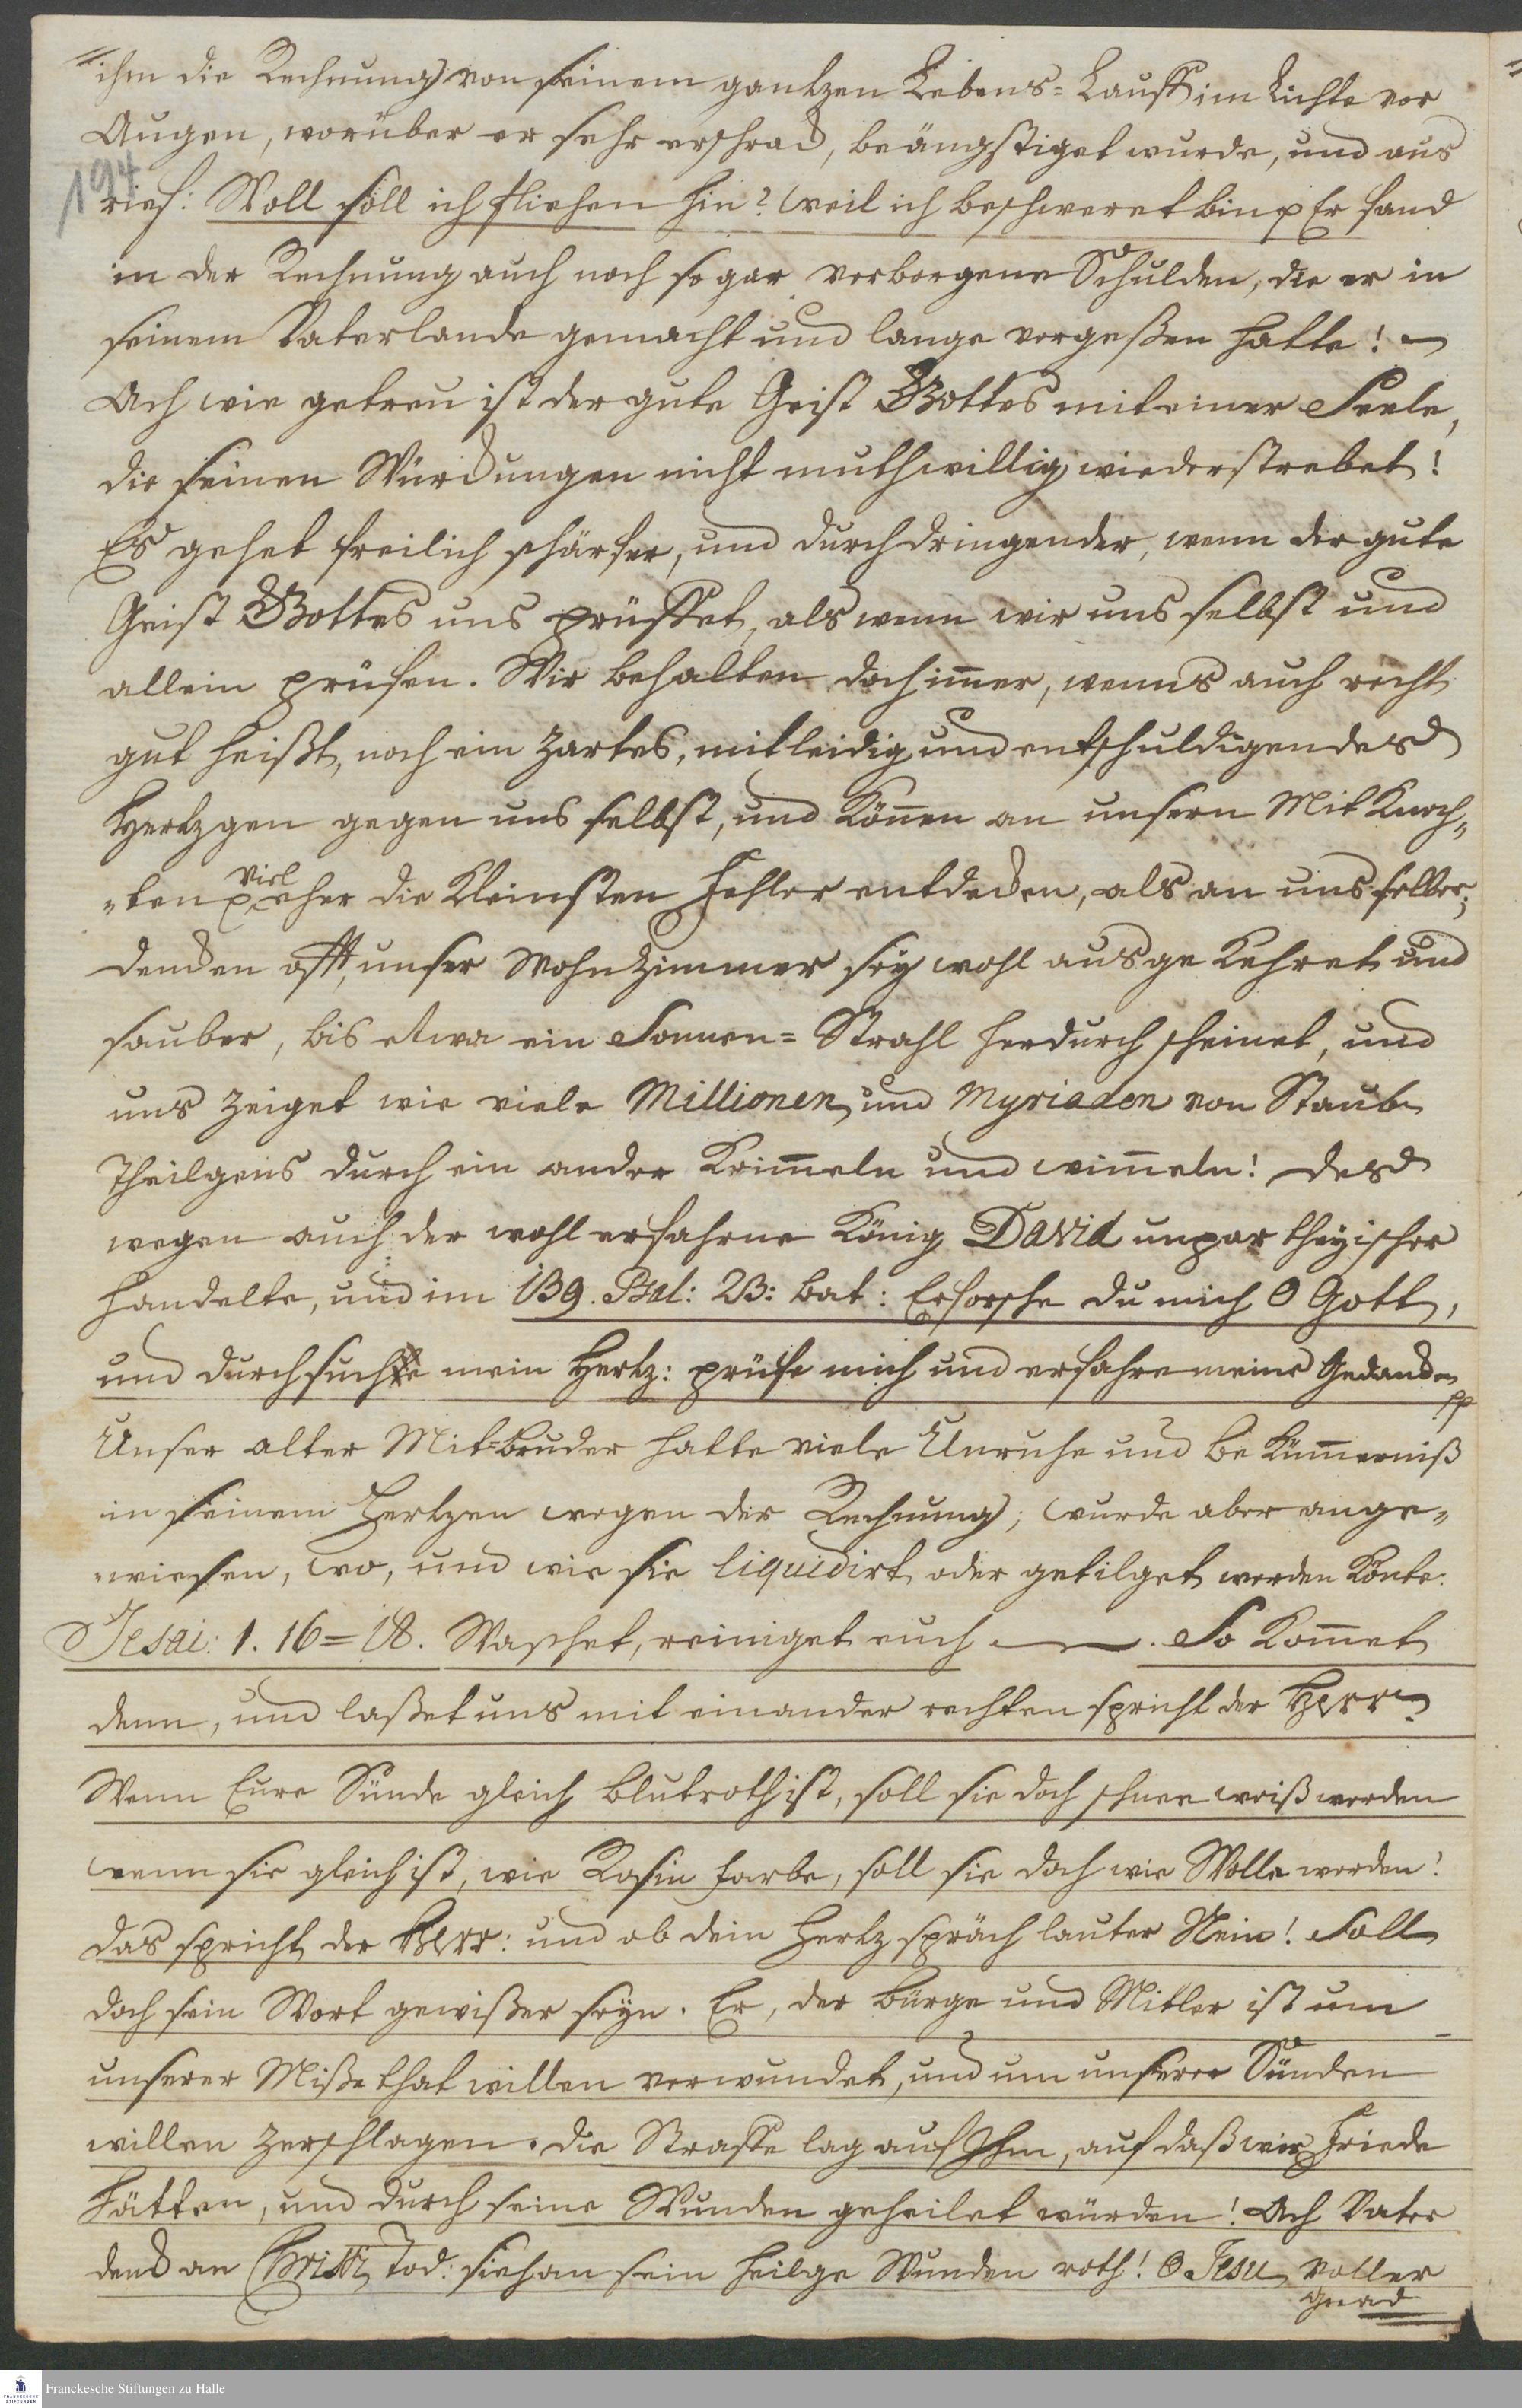 "ihm die Rechnung von seinem gantzen Lebens=Lauff im Lichte vor
Augen, worüber er sehr erschrack, beängstiget wurde, und aus
194
rief: Woll soll ich fliehen hin? weil ich beschweret bin p Er fand
in der Rechnung auch noch sogar verborgene Schulden, die er in
seinem Vaterlande gemacht und lange vergeßen hatte! —
Ach wie getreu ist der gute Geist Gottes mit einer Seele,
die seinen Würckungen nicht muthwillig wiederstrebet!
Es gehet freilich schärfer, und durchdringender, wenn der gute
Geist Gottes uns prüffet, als wenn wir uns selbst und
allein prüfen. Wir behalten doch im̅er, wenns auch recht
gut heißt, noch ein zartes, mitleidig und entschuldigendes
Hertzgen gegen uns selbst, und kön̅en an unsern Mit Knech„
„ten p viel eher die kleinsten Fehler entdecken, als an uns selber;
dencken offt, unser Wohnzimmer sey wohl ausge kehret und
sauber, bis etwa ein Sonnen=Strahl herdurch scheinet, und
uns zeiget wie viele Millionen und Myriaden von Staub
Theilgens durch ein ander krim̅eln und wim̅eln! Des
wegen auch der wohl erfahrne König David unpartheyischer
handelte, und im 139. Psal: 23: bat: Erforsche du mich O Gott,
und durchsuche mein Hertz: prüfe mich und erfahre meine Gedancken
pp
Unser alter Mit=Bruder hatte viele Unruhe und Be küm̅erniß
in seinem Hertzen wegen der Rechnung; wurde aber ange„
„wiesen, wo, und wie sie liquidirt oder getilget werden könte:
Jesai: 1. 16=18. Waschet, reiniget euch —. So kom̅et
denn, und laßet uns mit einander rechten spricht der Herr.
Wenn Eure Sünde gleich blutroth ist, soll sie doch schnee weiß werden
wenn sie gleich ist, wie Rosin farbe, soll sie doch wie Wolle werden!
das spricht der Herr: und ob dein Hertz spräch lauter Nein! Soll
doch sein Wort gewißer seyn. Er, der Bürge und Mitler ist um
unserer Mißethat willen verwundet, und um unserer Sünden
willen zerschlagen. die Straffe lag auf Ihm, auf daß wir Friede
hätten, und durch seine Wunden geheilet würden! Ach Vater
denck an Christi Tod: sieh an sein heilge Wunden roth! O Jesu voller
gnad
Franckesche Stiftungen zu Halle